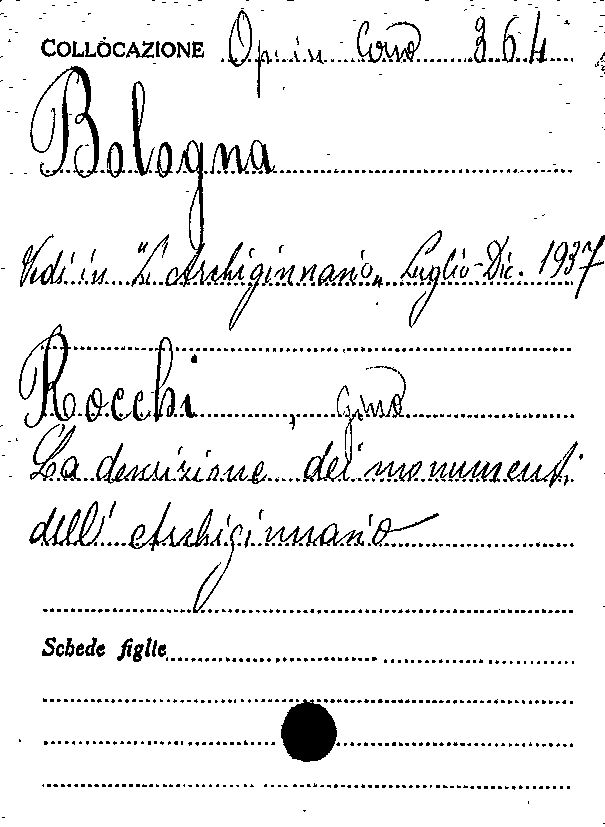 COLLOCAZIONE Op. in Corso 364
Bologna
Vedi in "L'Archiginnasio" Luglio-Dic. 1937
Rocchi, Gino
La descrizione dei monumenti
dell'Archiginnasio
Schede figlie